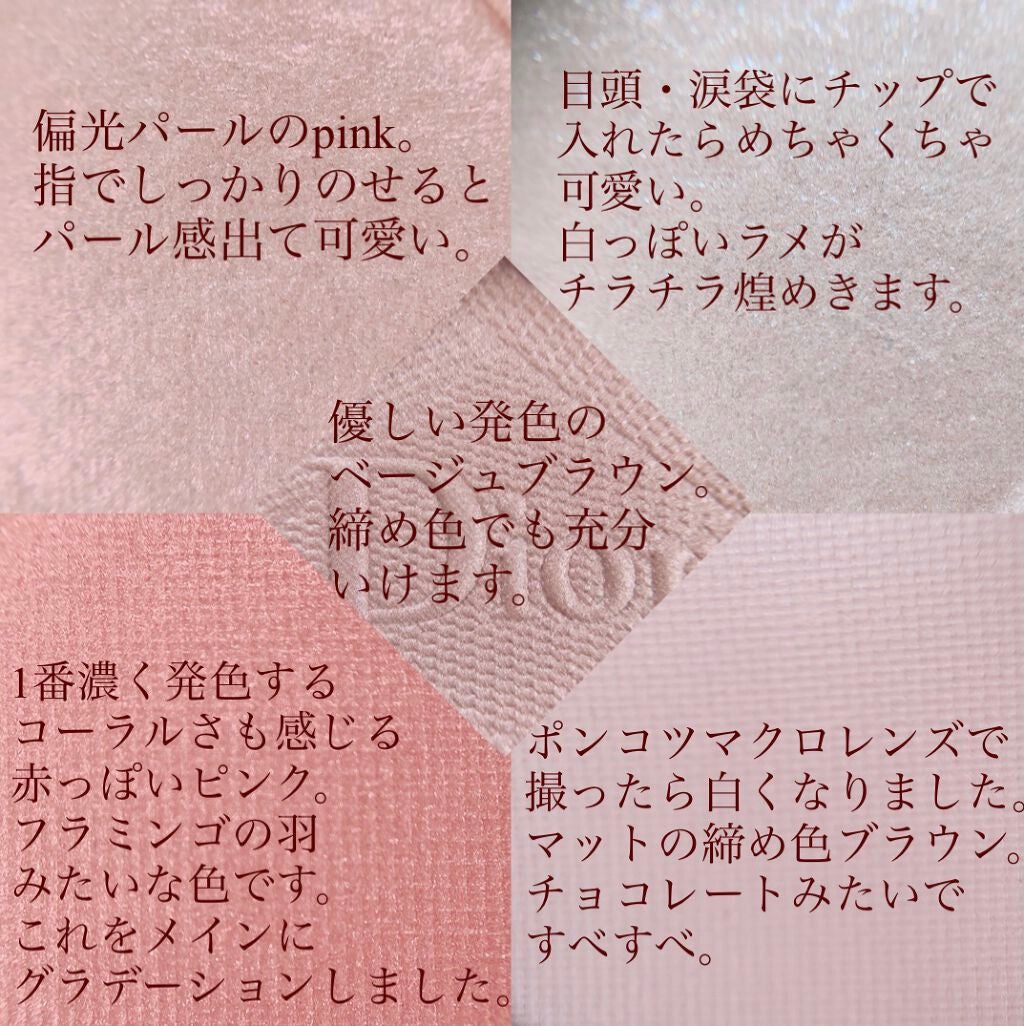 偏光パールのpink。
指でしっかりのせると
パール感出て可愛い。
目頭・涙袋にチップで
入れたらめちゃくちゃ
可愛い。
白っぽいラメが
チラチラ煌めきます。
優しい発色の
ベージュブラウン。
締め色でも充分
いけます。
Dior
1番濃く発色する
コーラルさも感じる
赤っぽいピンク。
フラミンゴの羽
みたいな色です。
これをメインに
グラデーションしました。
ポンコツマクロレンズで
撮ったら白くなりました。
マットの締め色ブラウン。
チョコレートみたいで
すべすべ。